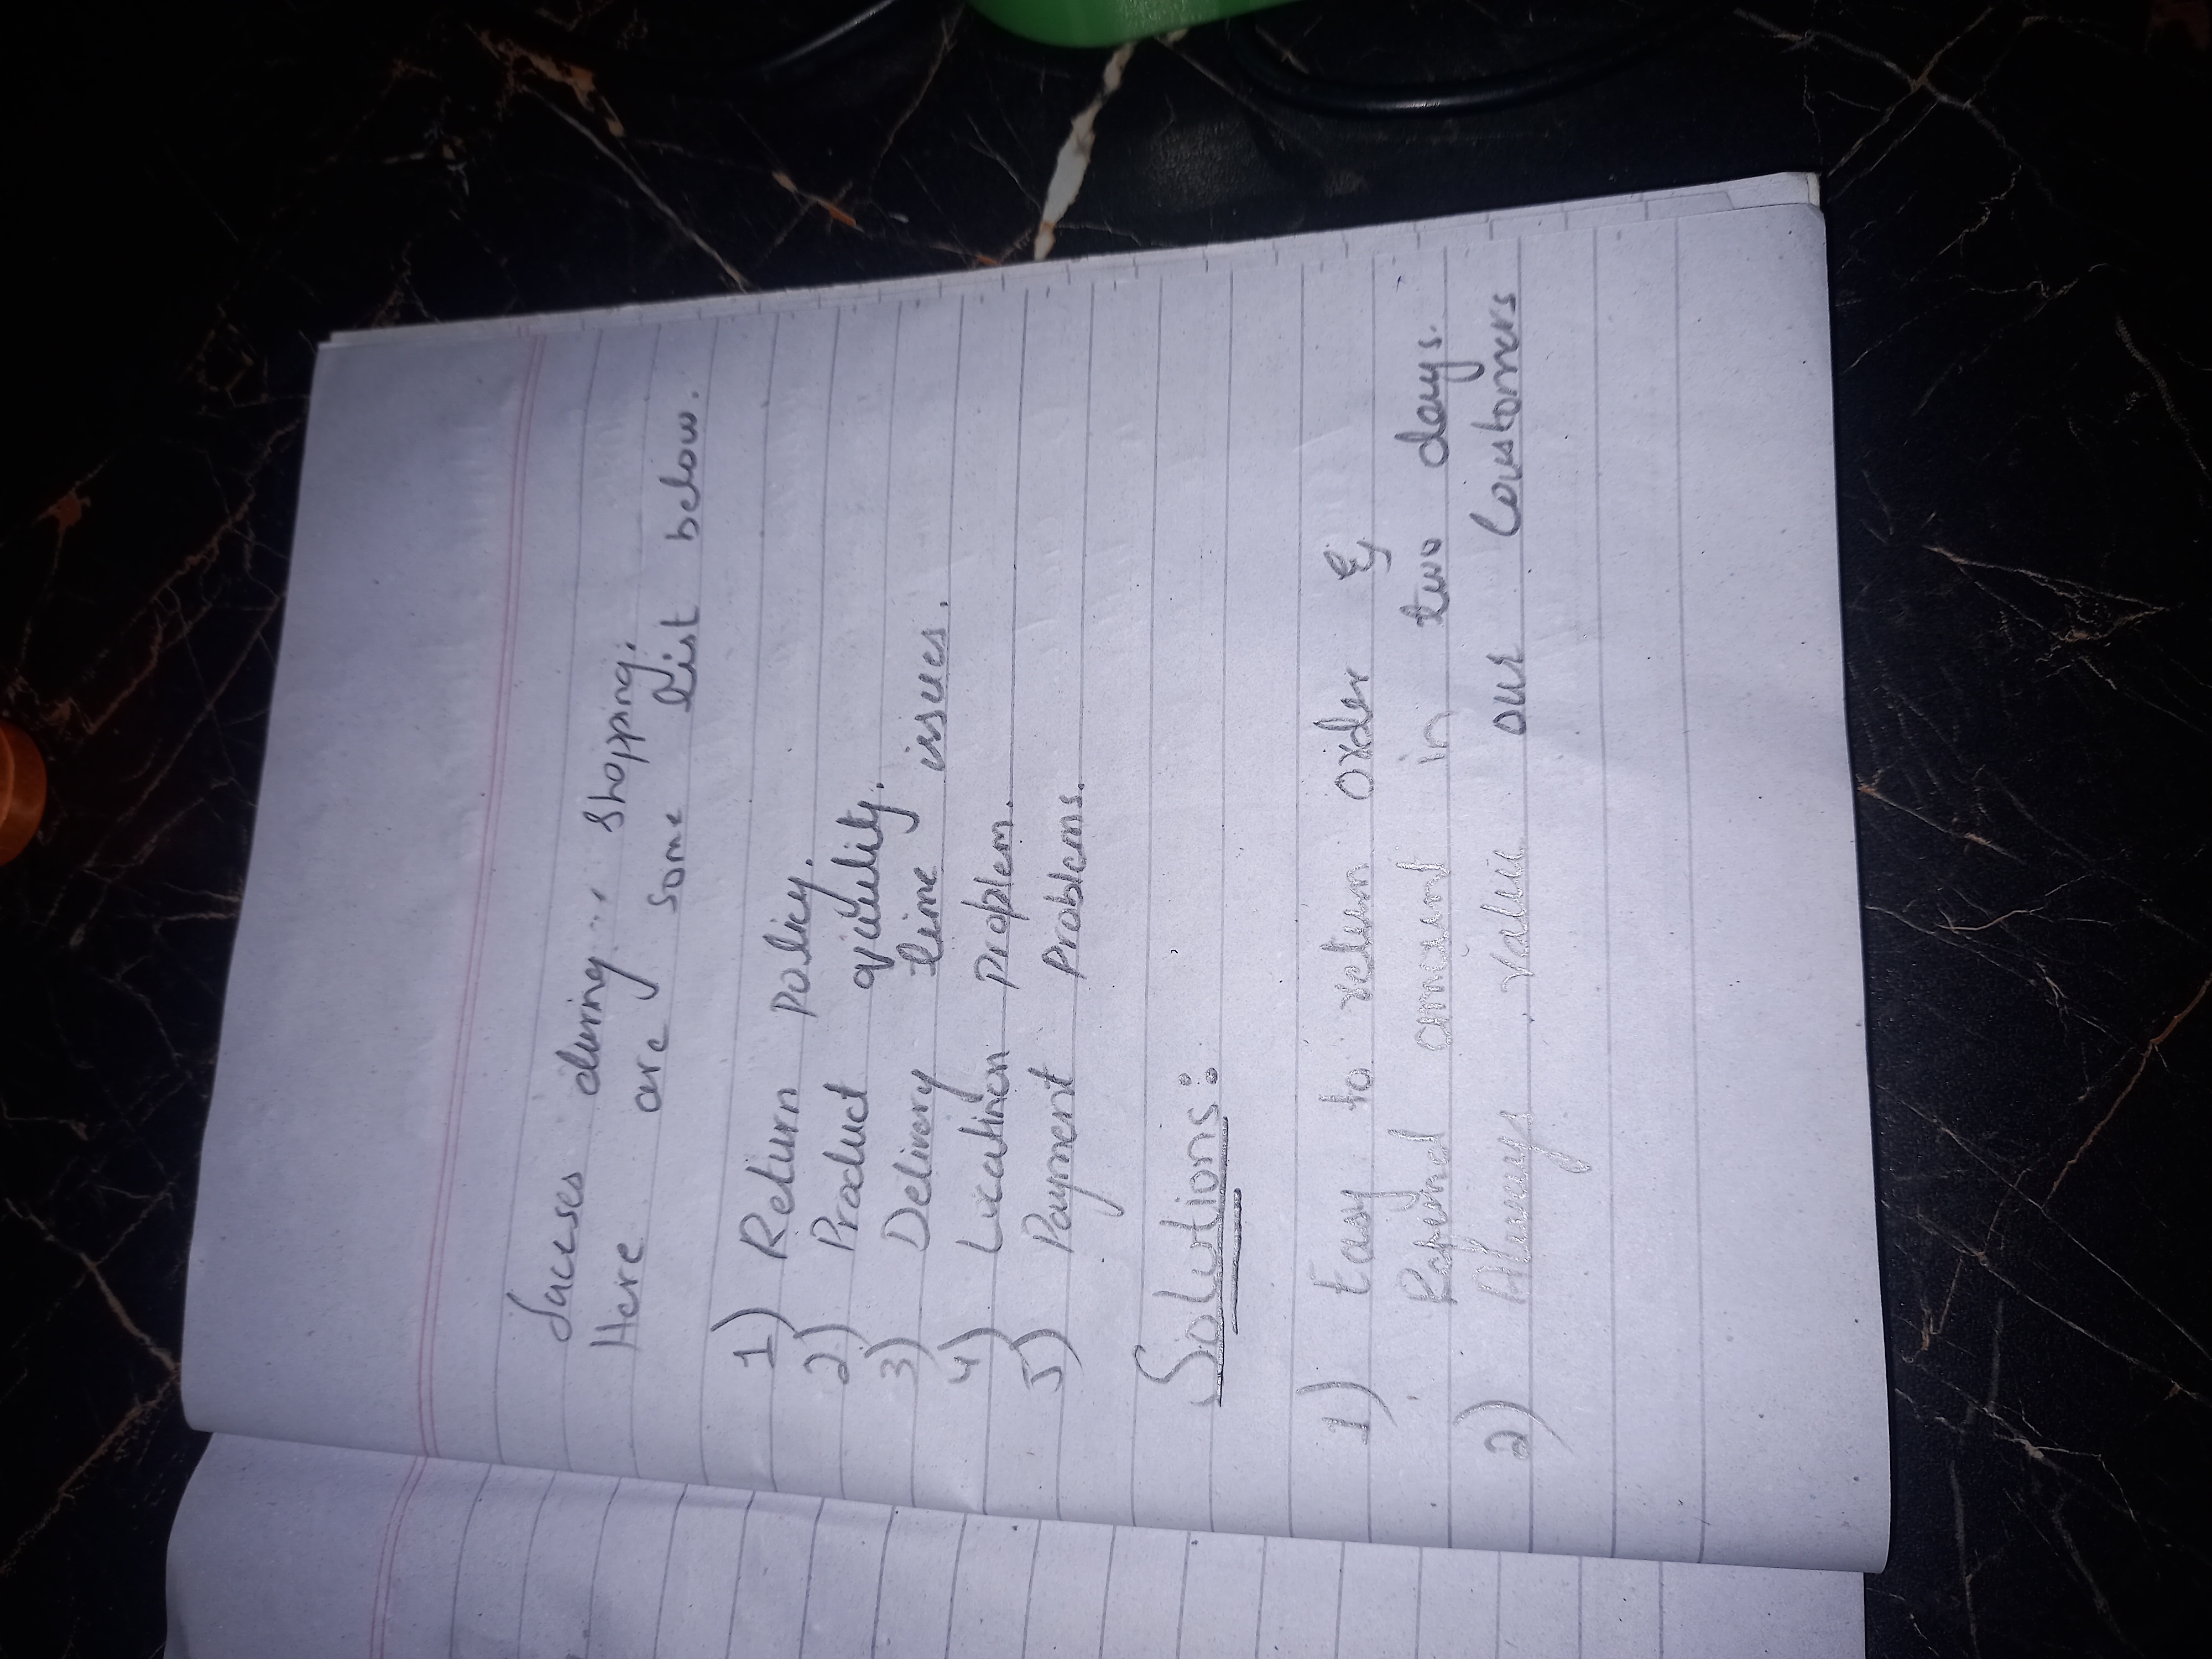 Sucuses during shopping.
Here are some list below.
1) Return policy.
2) Product quality.
3) Delivery time issues.
4) Location problem.
5) Payment problems.
Solutions:
1) Easy to return order &
Refund amount in two days.
2) Always value our Coustomers